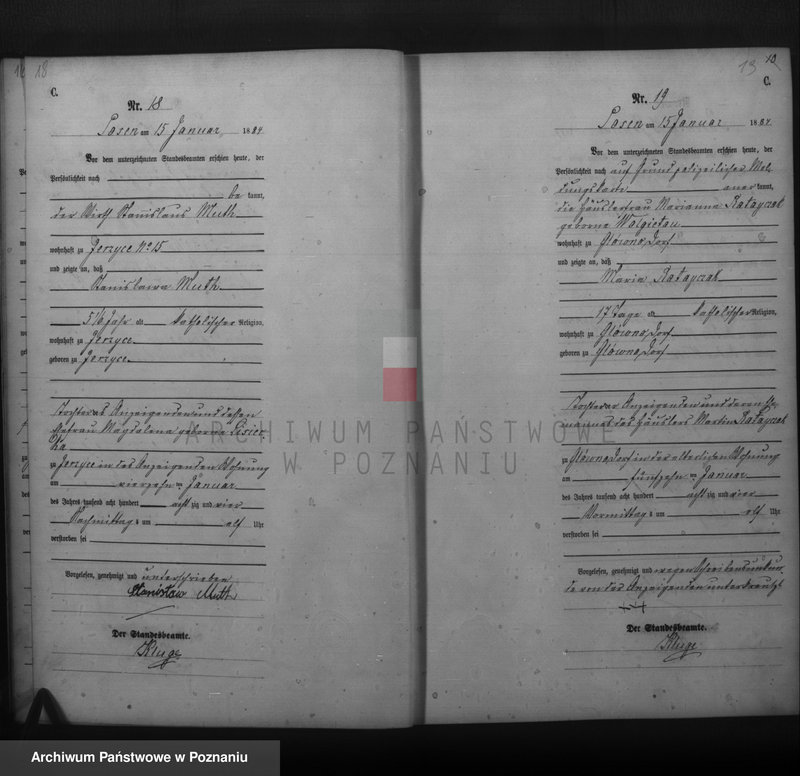 18
C.
Nr. 18
Posen am 15 Januar 1884
Vor dem unterzeichneten Standesbeamten erschien heute, der
Persönlichkeit nach
be kannt,
der Wirth Stanislaus Muth
wohnhaft zu Jerzyce No 15
und zeigte an, daß
Stanislawa Muth
5 1/6 Jahr alt katholischer Religion,
wohnhaft zu Jerzyce
geboren zu Jerzyce
Tochter des Anzeigenden und dessen
Ehefrau Magdalena geborene
zu Jerzyce in des Anzeigenden Wohnung
am vierzehn ten Januar
des Jahrs tausend acht hundert acht zig und vier
Nachmittags um elf Uhr
verstorben sei
Vorgelesen, genehmigt und unterschrieben
Stanisław Muth
Der Standesbeamte.
Kluge
13 10
C.
Nr. 19
Posen am 15 Januar 1884
Vor dem unterzeichneten Standesbeamten erschien heute, der
Persönlichkeit nach auf Grund polizeilicher Mel-
dungskarte aner kannt,
die Häuslerfrau Marianna Ratayczak
geborne
wohnhaft zu Glowno, Dorf
und zeigte an, daß
Maria Ratayczak
17 Tage alt katholischer Religion,
wohnhaft zu Glowno, Dorf
geboren zu Glowno, Dorf
Tochter der Anzeigenden und deren Ehe-
mannes des Häuslers Martin Ratayczak
zu Glowno, Dorf in der elterlichen Wohnung
am fünfzehn ten Januar
des Jahrs tausend acht hundert acht zig und vier
Vormittags um elf Uhr
verstorben sei
Vorgelesen, genehmigt und wegen Schreibensunkun-
de von der Anzeigenden unterkreuzt
+++
Der Standesbeamte.
Kluge
ARCHIWUM PAŃSTWOWE
W POZNANIU
Archiwum Państwowe w Poznaniu